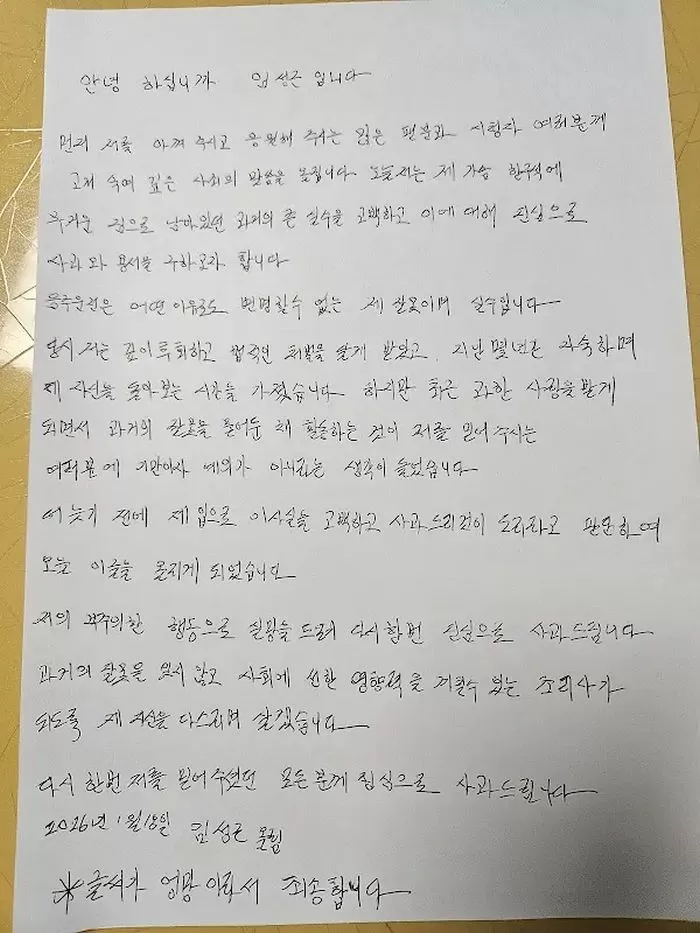 안녕 하십니까 임성근 입니다
먼저 저를 아껴 주시고 응원해 주시는 많은 팬분과 시청자 여러분께
고개 숙여 깊은 사죄의 말씀을 올립니다 오늘 저는 제 가슴 한구석에
무거운 짐으로 남아있던 과거의 큰 실수를 고백하고 이에 대해 진심으로
사과와 용서를 구하고자 합니다
음주운전은 어떤 이유로도 변명할수 없는 제 잘못이며 실수입니다
당시 저는 깊이 후회하고 법적인 처벌을 달게 받았고 지난 몇년간 자숙하며
제 자신을 돌아보는 시간을 가졌습니다 하지만 최근 과한 사랑을 받게
되면서 과거의 잘못을 묻어둔 채 활동하는 것이 저를 믿어 주시는
여러분에 기만이자 예의가 아니라는 생각이 들었습니다
더 늦기 전에 제 입으로 이사실을 고백하고 사과드리것이 도리라고 판단하여
오늘 이글을 올리게 되었습니다
저의 부주의한 행동으로 실망을 드려 다시한번 진심으로 사과드립니다
과거의 잘못을 잊지 않고 사회에 선한 영향력을 끼칠수 있는 조리사가
되도록 제 자신을 다스리며 살겠습니다
다시 한번 저를 믿어 주셨던 모든분께 진심으로 사과드립니다
2026년 1월 18일 임성근 올림
※글씨가 엉망이라서 죄송합니다